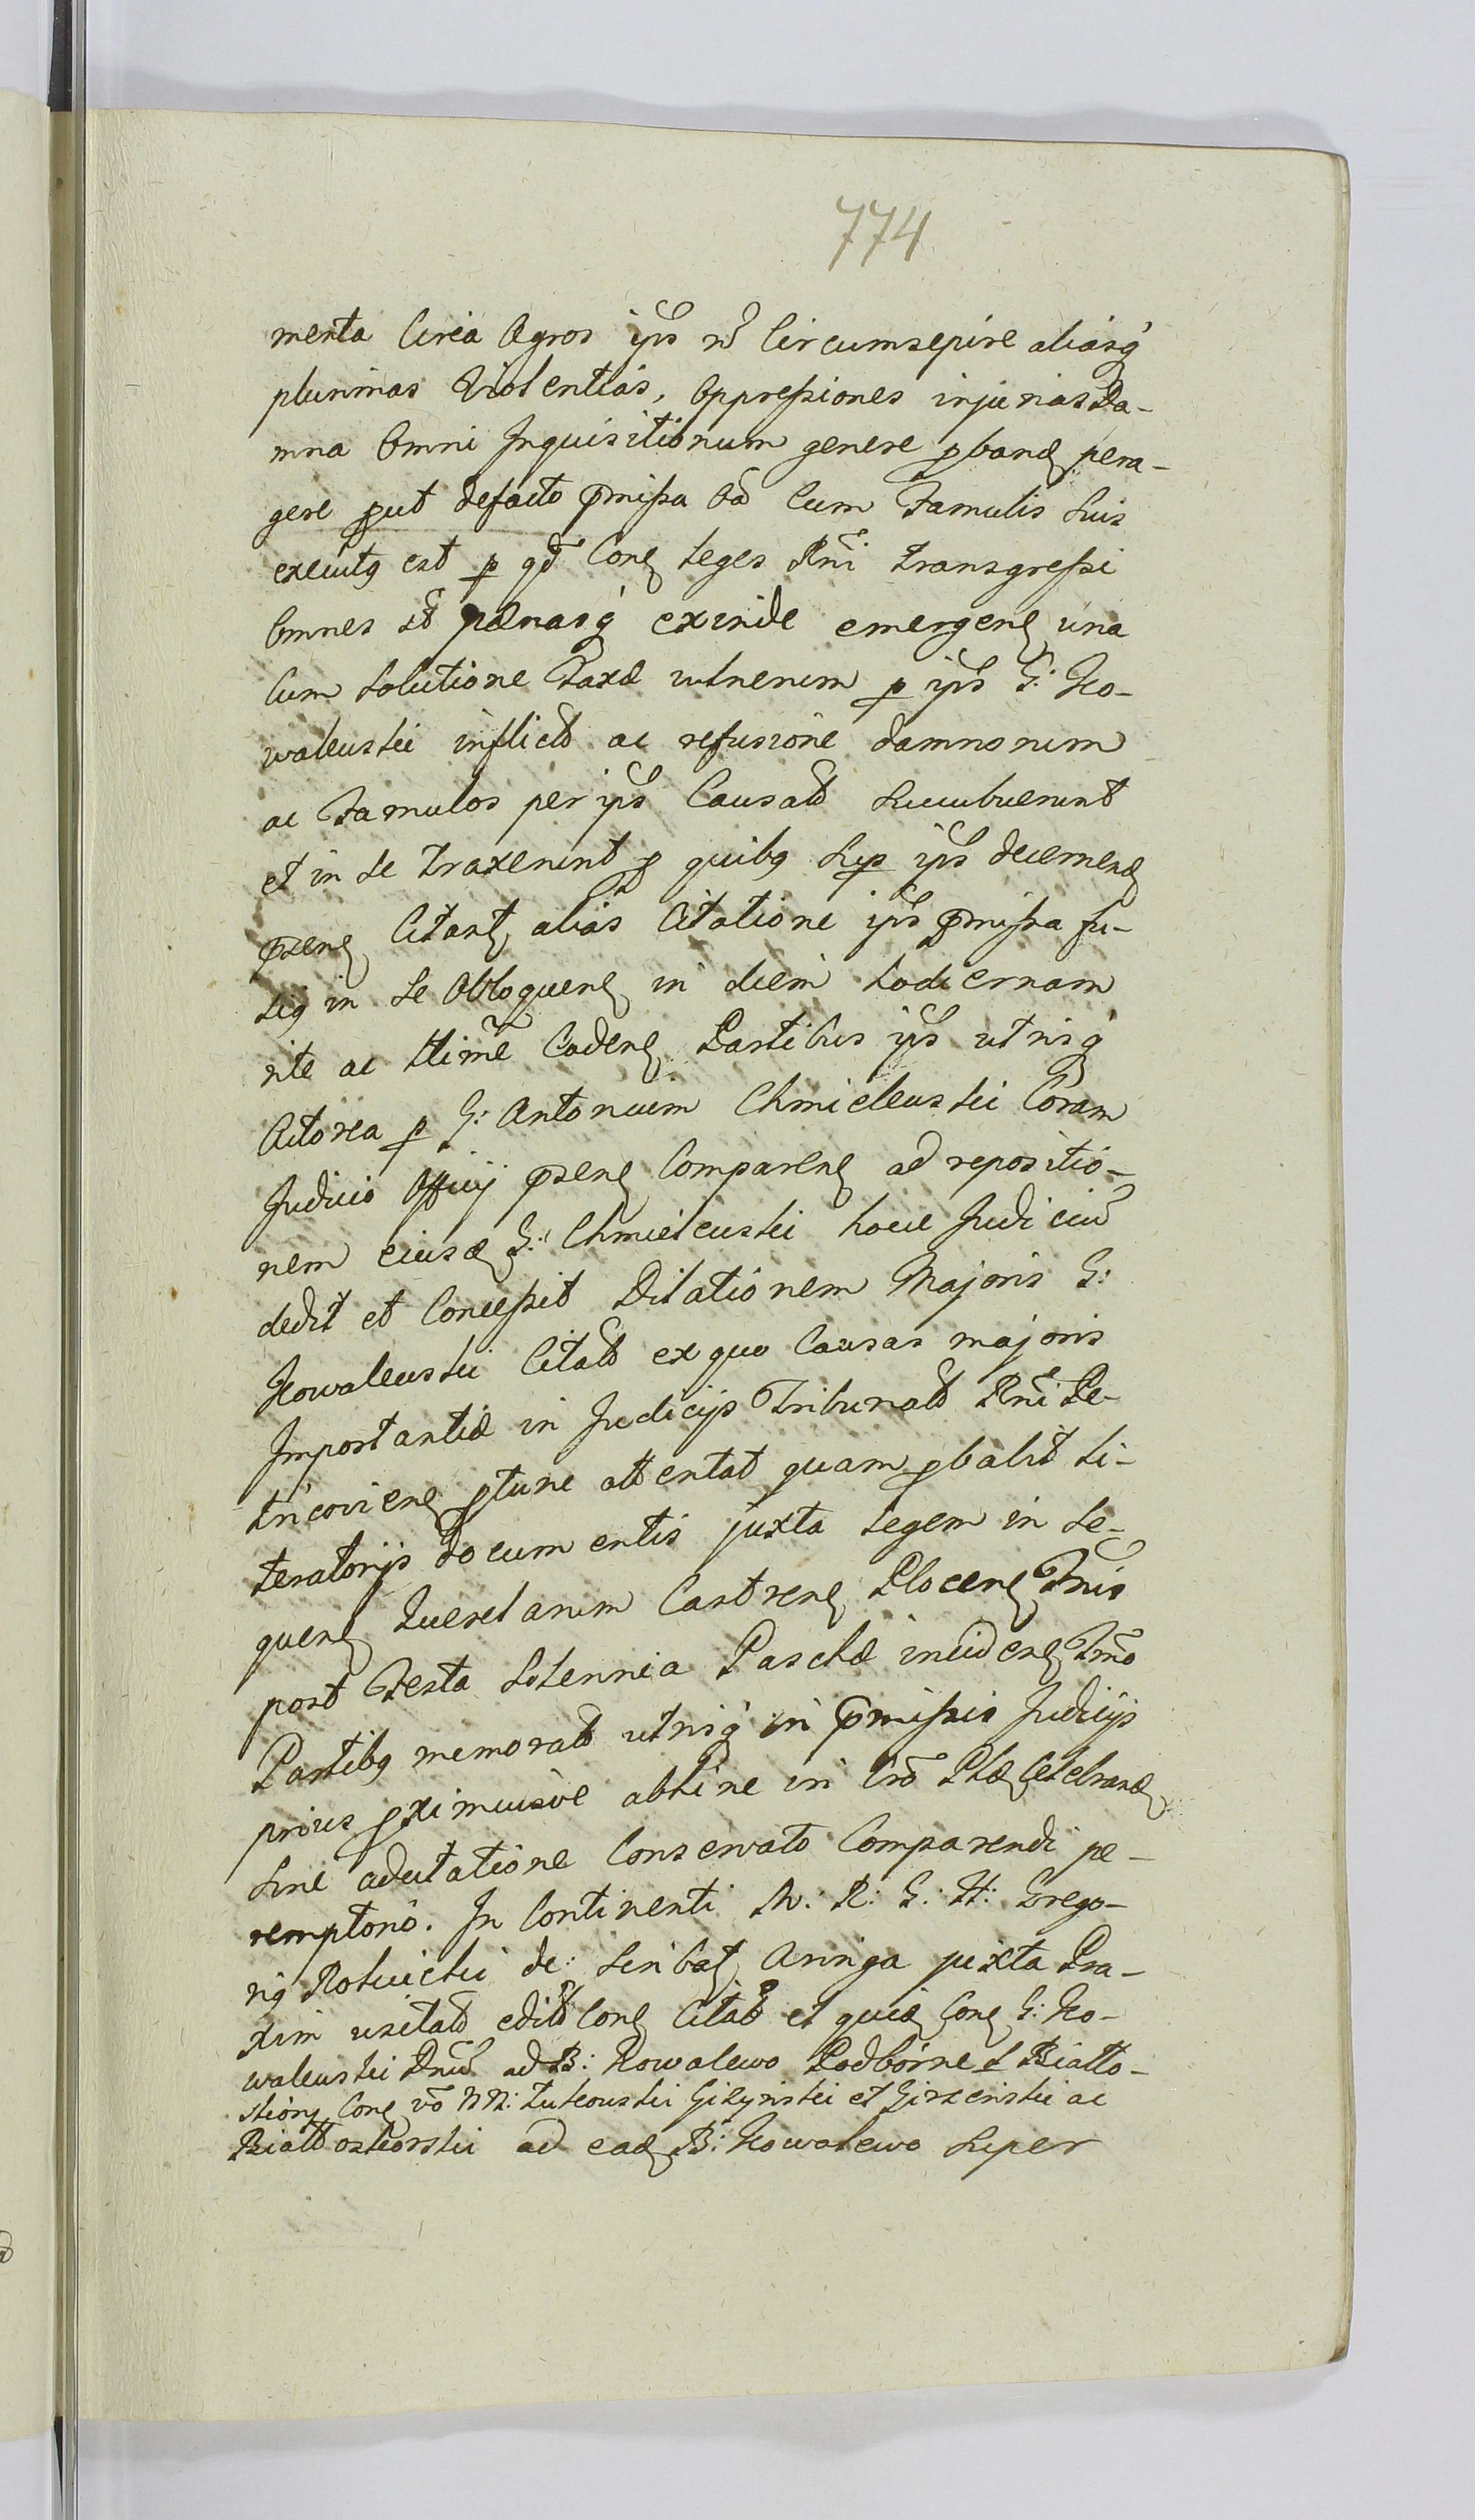 774
menta Circa Agros ips ꝛ̃ Circumsepire aliasq́
plurimas Violentias, Oppreßiones injurias Da-
mna Omni Inquisitionum genere ꝓbanđ pera-
gere ꝓut defacto p̃mißa oã Cum Famulis Suis
executꝯ est ꝑ qd̃ Conꝭ Leges Rni transgreßi
Omnes st̃ pænasq́ exinde emergenꝭ una
Cum Solutione Taxæ vulnerum ꝑ ips G: Ko-
walewski inflict̃ ac refusione damnorum
ac Famulos per ips Causat̃ Sucubuerunt
et in Se traxerunt ꝓ quibꝯ Sup ips decernenđ
p̃senꝭ Citantꝭ alias Citatione ips p̃mißa fu-
siꝯ in Se Obloquenꝭ in diem hodiernam
rite ac ltime Cadenꝭ Partibus ips utrisq́
Actorea ꝑ G: Antonium Chmielewski Coram
Judicio Officij p̃senꝭ Comparenꝭ ad repositio-
nem eiusđ G: Chmielewski hocce Judiciũ
dedit et Conceßit Dilationem Majoris G:
Kowalewski Citat̃ ex quo Causas majoris
Importantiæ in Judicijs Tribunal̃ Rni Pe-
tricovienꝭ ꝓtunc attentat quam ꝓbabit Li-
teratorijs documentis juxta Legem in Se-
quenꝭ Querelarum Castrenꝭ Plocenꝭ Tmis
post Festa Solennia Paschæ incidenꝭ Tmo
Partibꝯ memorat̃ utrisq́ in p̃mißis Judicijs
prius ꝓximiusve abhinc in Cro Plæ Celebranđ
Sine adcitatione Conservato Comparendi pe-
remptorio. In Continenti M: R: G: H: Grego-
riꝯ Rościcki de: Scribatꝭ Aringa juxta Pra-
xim usitat̃ edit̃ Conꝭ Citat̃ et quid̃ Conꝭ G: Ko-
walewski Dnũ ad B: Kowalewo Podborne ł Biało-
skióry Conꝭ vo NN: Lutkowski Giżyński et Girzeński ac
Białłoskórski ad eađ B: Kowalewo Super